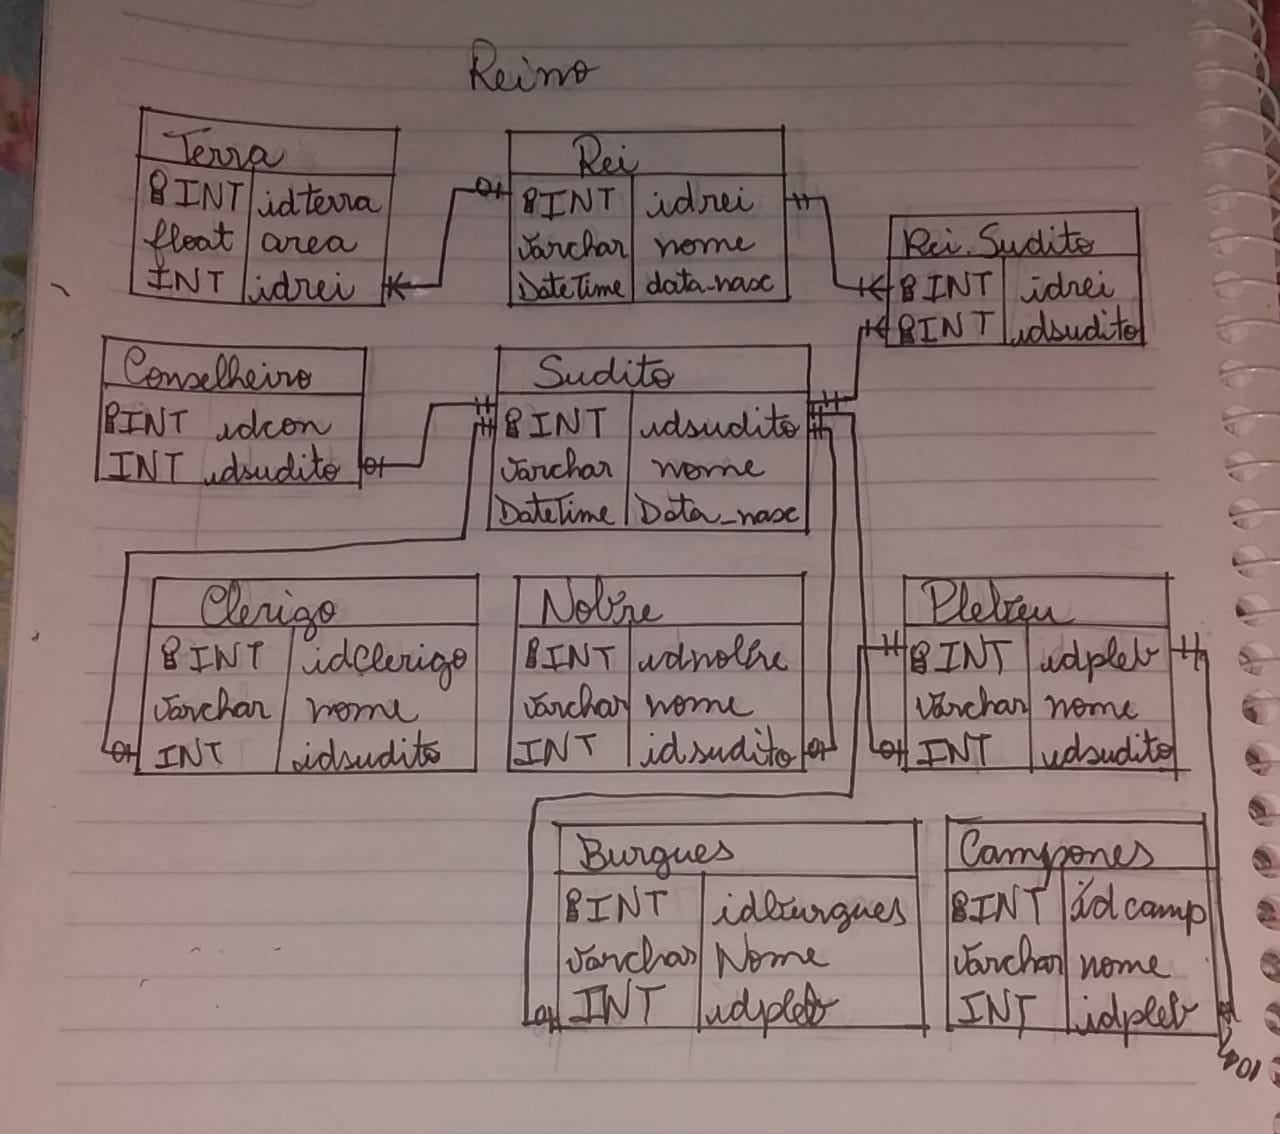 Reino
Terra
INT idterra
float area
INT idrei
Rei
INT idrei
Varchar nome
DateTime data_nasc
Rei_Sudito
INT idrei
INT idsudito
Conselheiro
INT idcon
INT idsudito
Sudito
INT idsudito
Varchar nome
DateTime Data_nasc
Clerigo
INT idclerigo
Varchar nome
INT idsudito
Nobre
INT idnobre
Varchar nome
INT idsudito
Plebeu
INT idpleb
Varchar nome
INT idsudito
Burgues
INT idburgues
Varchar Nome
INT idpleb
Campones
INT idcamp
Varchar nome
INT idpleb